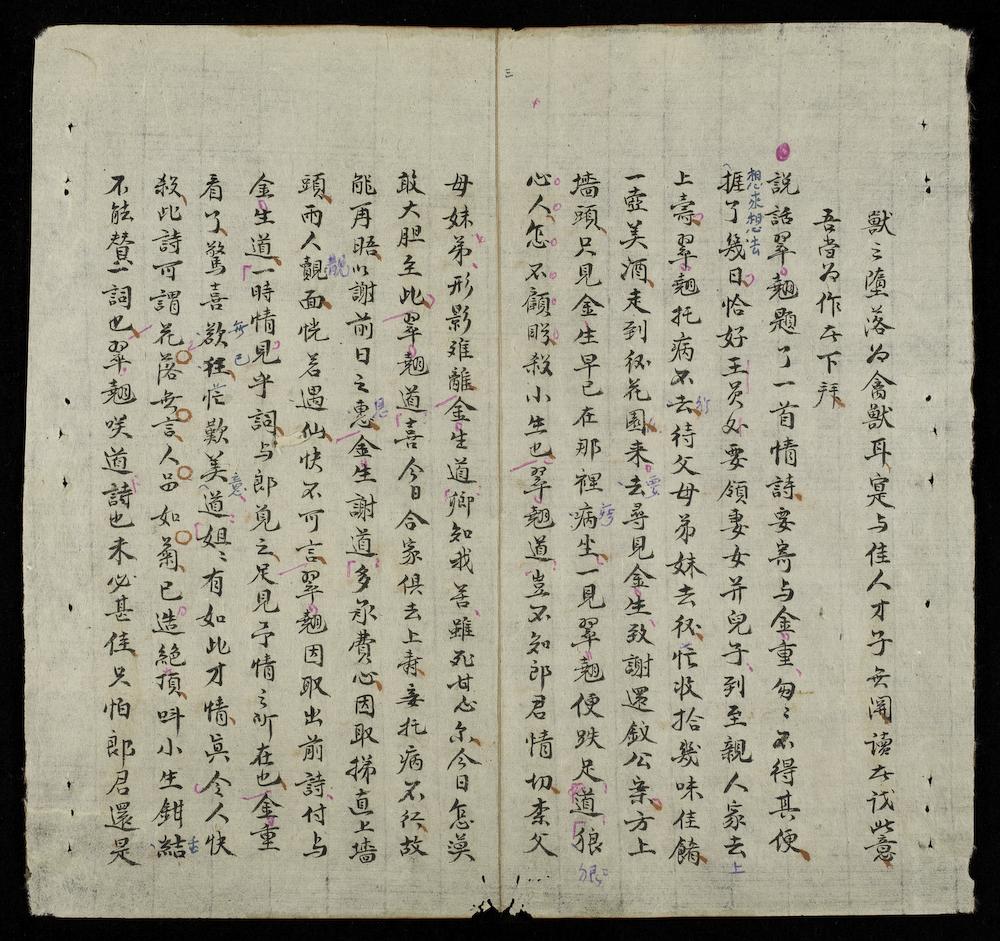 獸之墮落为禽獸耳寔与佳人才子無闲讀者试此意
吾當为作者下拜
說話翠翹題了一首情詩要寄与金重匆々不得其便
想來想去
捱了幾日恰好王員外要領妻女并兒子到至親人家去
上
上壽翠翹托病不去待父母弟妹去後忙收拾幾味佳餚
行
一壺美酒走到後花園来去尋見金生致謝還釵公案方上
要
墻頭只見金生早已在那裡病坐一見翠翹便跌足道狼
心人怎不顧盼殺小生也翠翹道豈不知郎君情切柰父
三
母妹弟形影难離金生道卿知我苦雖死甘心尔今日怎莫
敢大胆至此翠翹道喜今日合家俱去上壽妾托病不行故
能再晤以謝前日之惠金生謝道多承費心因取梯直上墻
恩
頭兩人覿面恍若遇仙快不可言翠翹因取出前詩付与
覿
金生道一時情見乎詞与郎見之足見予情之所在也金重
看了驚喜欲狂忙歎美道姐々有如此才情真令人快
無已
意
殺此詩可謂花落無言人品如菊已造絕頂叫小生鉗結
舌
不能賛一詞也翠翹咲道詩也未必甚佳只怕郎君還是